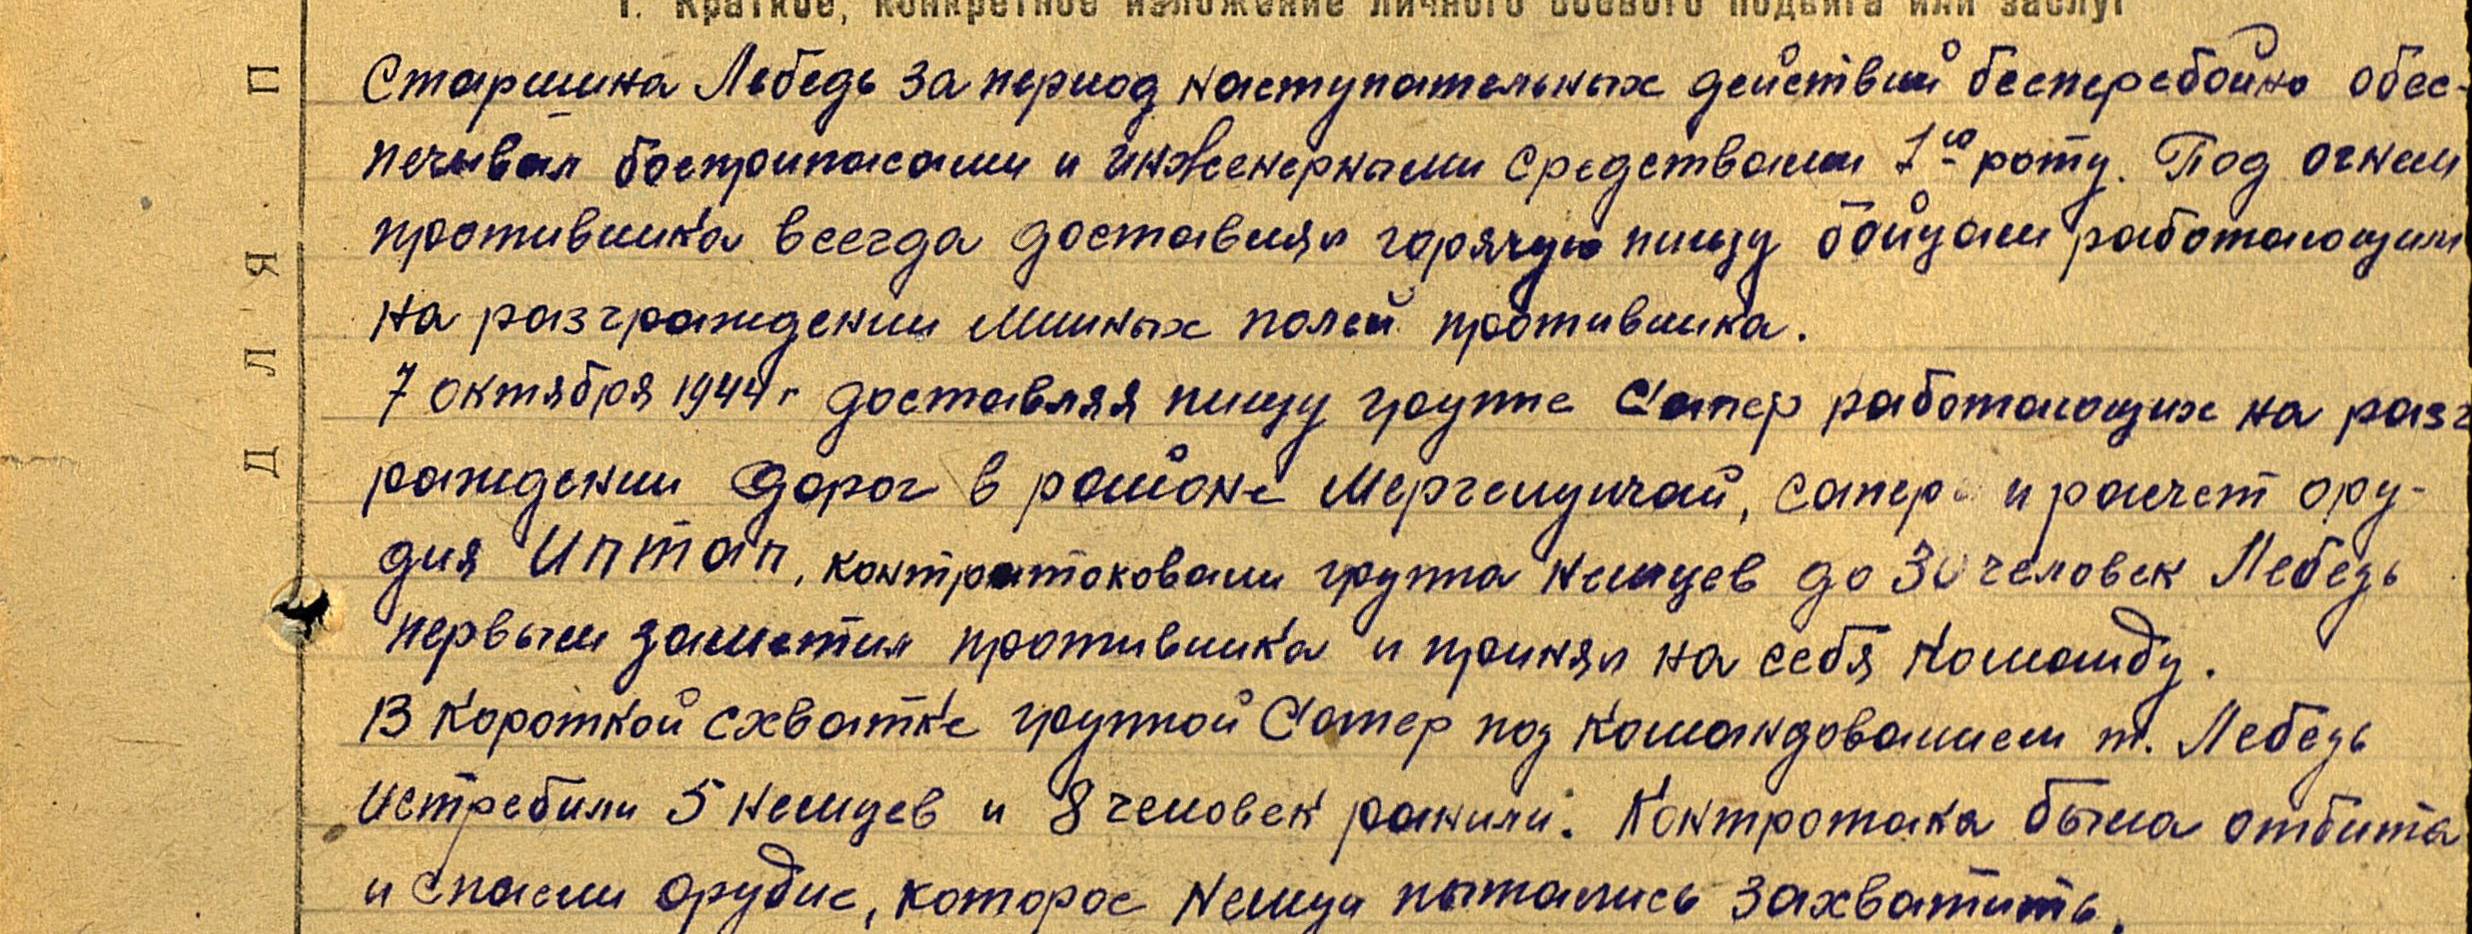 1. Краткое, конкретное изложение личного боевого подвига или заслуг
Старшина Лебедь за период наступательных действий бесперебойно обес-
печивал боеприпасами и инженерными средствами 1ю роту. Под огнем
противника всегда доставлял горячую пищу бойцам работающим
на разграждении минных полей противника.
7 октября 1944 г доставляя пищу группе Сапер работающих на разг
раждении дорог в районе сапер и расчет ору-
дия Иптап, контратоковали группа немцев до 30 человек Лебедь
первым заметил противника и принял на себя команду.
В короткой схватке группой Сапер под командованием т. Лебедь
истребили 5 немцев и 8 человек ранили. Контротака была отбита
и спасли орудие, которое немцы пытались захватить.
Д Л Я П